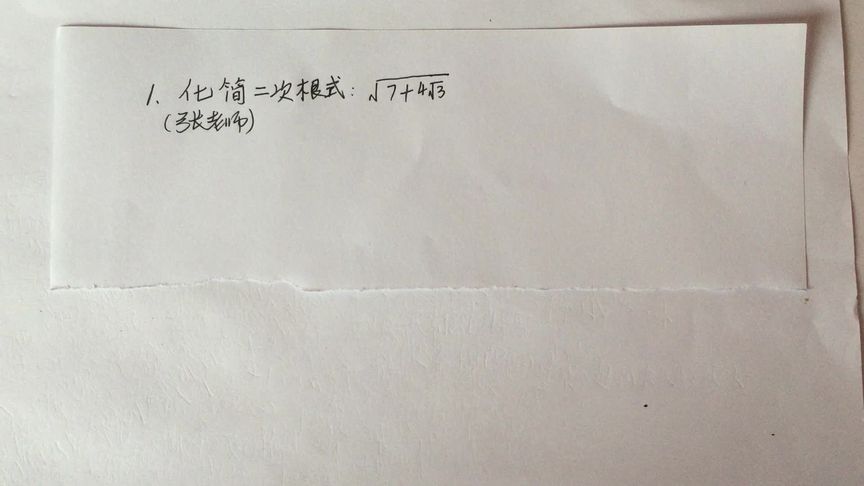 1、化简二次根式：√7+4√3
(张老师)